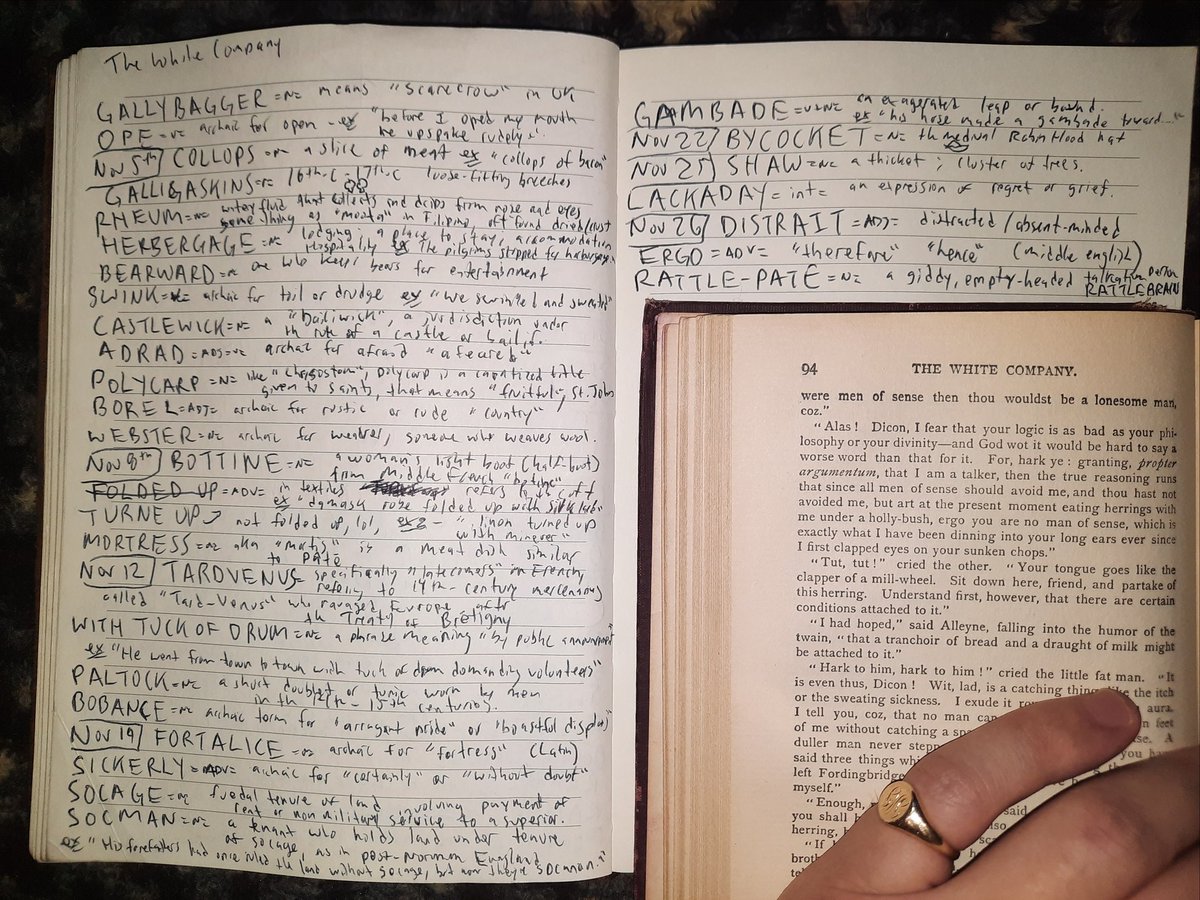 The White Company
GALLYBAGGER =N= means "scarecrow" in UK
OPE =v= archaic for open - ex "before I oped my mouth
he upspake rudely".
Nov 5th COLLOPS =n= a slice of meat ex "collops of bacon"
GALLIGASKINS =n= 16th-C - 17th-C loose-fitting breeches
RHEUM =n= watery fluid that collects and drips from nose and eyes
same thing as "mouta" in Filipino, oft found dried/crust
HERBERGAGE =N= lodging; a place to stay, accommodation
Hospitality ex The pilgrims stopped for harburgage
BEARWARD =n= one who keeps bears for entertainment
SWINK =v= archaic for toil or drudge ex "we swinked and sweated"
CASTLEWICK =N= a "bailiwick", a jurisdiction under
th rule of a castle or bailif.
ADRAD =ADJ= archaic for afraid "afeared"
POLYCARP =N= like "Chrysostom", polycarp is a
given to saints, that means "fruitful", St. John
BOREL =ADJ= archaic for rustic or rude "country"
WEBSTER =n= archaic for weaver, someone who weaves wool.
Nov 8th BOTTINE =N= a woman's light boot (half-boot)
from Middle French "botine"
FOLDED UP =ADV= in textiles refers to th cuff
ex "damask rose folded up with silk"
TURNE UP not folded up, lol, ex2 - "linon turned up
with minever"
MORTRESS =n= aka "mortis" is a meat dish similar
to pate
Nov 12 TARDVENUS - specifically "latecomers" in French,
refering to 14th-century mercenaries
called "Tard-Venus" who ravaged Europe aftr
the Treaty of Bretigny
WITH TUCK OF DRUM =N= a phrase meaning "by public announcement"
ex "He went from town to town with tuck of drum demanding volunteers"
PALTOCK =N= a short doublet or tunic worn by men
in the 14th-15th centuries.
BOBANCE =n= archaic term for "arrogant pride" or "boastful display"
Nov 19 FORTALICE =n= archaic for "fortress" (Latin)
SICKERLY =ADV= archaic for "certainly" or "without doubt"
SOCAGE =n= fuedal tenure of land involving payment of
rent or non military service to a superior.
SOCMAN =N= a tenant who holds land under tenure
of socage, as in post-Norman England
ex "His forefathers had once ruled the land without socage, but now they're socman."
GAMBADE =v+N= an exagerated leap or bound.
ex "his horse made a gambade toward..."
Nov 22 BYCOCKET =N= th medival Robin Hood hat
Nov 25 SHAW =N= a thicket; cluster of trees.
LACKADAY =int= an expression of regret or grief.
Nov 26 DISTRAIT =ADJ= distracted/absent-minded
ERGO =ADV= "therefore" "hence" (middle english)
RATTLE-PATE =N= a giddy, empty-headed talkative person
RATTLEBRAIN
94 THE WHITE COMPANY.
were men of sense then thou wouldst be a lonesome man,
coz."
"Alas! Dicon, I fear that your logic is as bad as your phi-
losophy or your divinity—and God wot it would be hard to say a
worse word than that for it. For, hark ye: granting, propter
argumentum, that I am a talker, then the true reasoning runs
that since all men of sense should avoid me, and thou hast not
avoided me, but art at the present moment eating herrings with
me under a holly-bush, ergo you are no man of sense, which is
exactly what I have been dinning into your long ears ever since
I first clapped eyes on your sunken chops."
"Tut, tut!" cried the other. "Your tongue goes like the
clapper of a mill-wheel. Sit down here, friend, and partake of
this herring. Understand first, however, that there are certain
conditions attached to it."
"I had hoped," said Alleyne, falling into the humor of the
twain, "that a tranchoir of bread and a draught of milk might
be attached to it."
"Hark to him, hark to him!" cried the little fat man. "It
is even thus, Dicon! Wit, lad, is a catching thing, like the itch
or the sweating sickness. I exude it
aura.
I tell you, coz, that no man can
feet
of me without catching a
A
duller man never
you
said three things
left Fordingbridge
myself."
"Enough,
said
you shall
also
herring,
"If